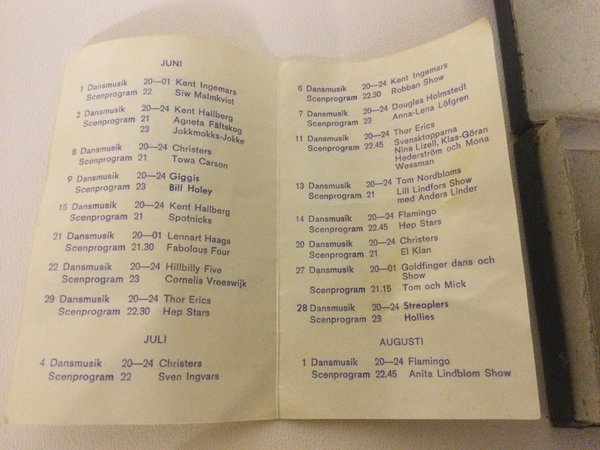 JUNI
1 Dansmusik 20—01 Kent Ingemars
Scenprogram 22 Siw Malmkvist
2 Dansmusik 20—24 Kent Hallberg
Scenprogram 21 Agneta Fältskog
23 Jokkmokks-Jokke
8 Dansmusik 20—24 Christers
Scenprogram 21 Towa Carson
9 Dansmusik 20—24 Giggis
Scenprogram 23 Bill Holey
15 Dansmusik 20—24 Kent Hallberg
Scenprogram 21 Spotnicks
21 Dansmusik 20—01 Lennart Haags
Scenprogram 21.30 Fabolous Four
22 Dansmusik 20—24 Hillbilly Five
Scenprogram 23 Cornelis Vreeswijk
29 Dansmusik 20—24 Thor Erics
Scenprogram 22.30 Hep Stars
JULI
4 Dansmusik 20—24 Christers
Scenprogram 22 Sven Ingvars
6 Dansmusik 20—24 Kent Ingemars
Scenprogram 22.30 Robban Show
7 Dansmusik 20—24 Douglas Holmstedt
Scenprogram 23 Anna-Lena Löfgren
11 Dansmusik 20—24 Thor Erics
Scenprogram 22.45 Svensktopparna
Nina Lizell, Klas-Göran
Hederström och Mona
Wessman
13 Dansmusik 20—24 Tom Nordbloms
Scenprogram 21 Lill Lindfors Show
med Anders Linder
14 Dansmusik 20—24 Flamingo
Scenprogram 22.45 Hep Stars
20 Dansmusik 20—24 Christers
Scenprogram 21 El Klan
27 Dansmusik 20—01 Goldfinger dans och
Show
Scenprogram 21.15 Tom och Mick
28 Dansmusik 20—24 Streaplers
Scenprogram 23 Hollies
AUGUSTI
1 Dansmusik 20—24 Flamingo
Scenprogram 22.45 Anita Lindblom Show